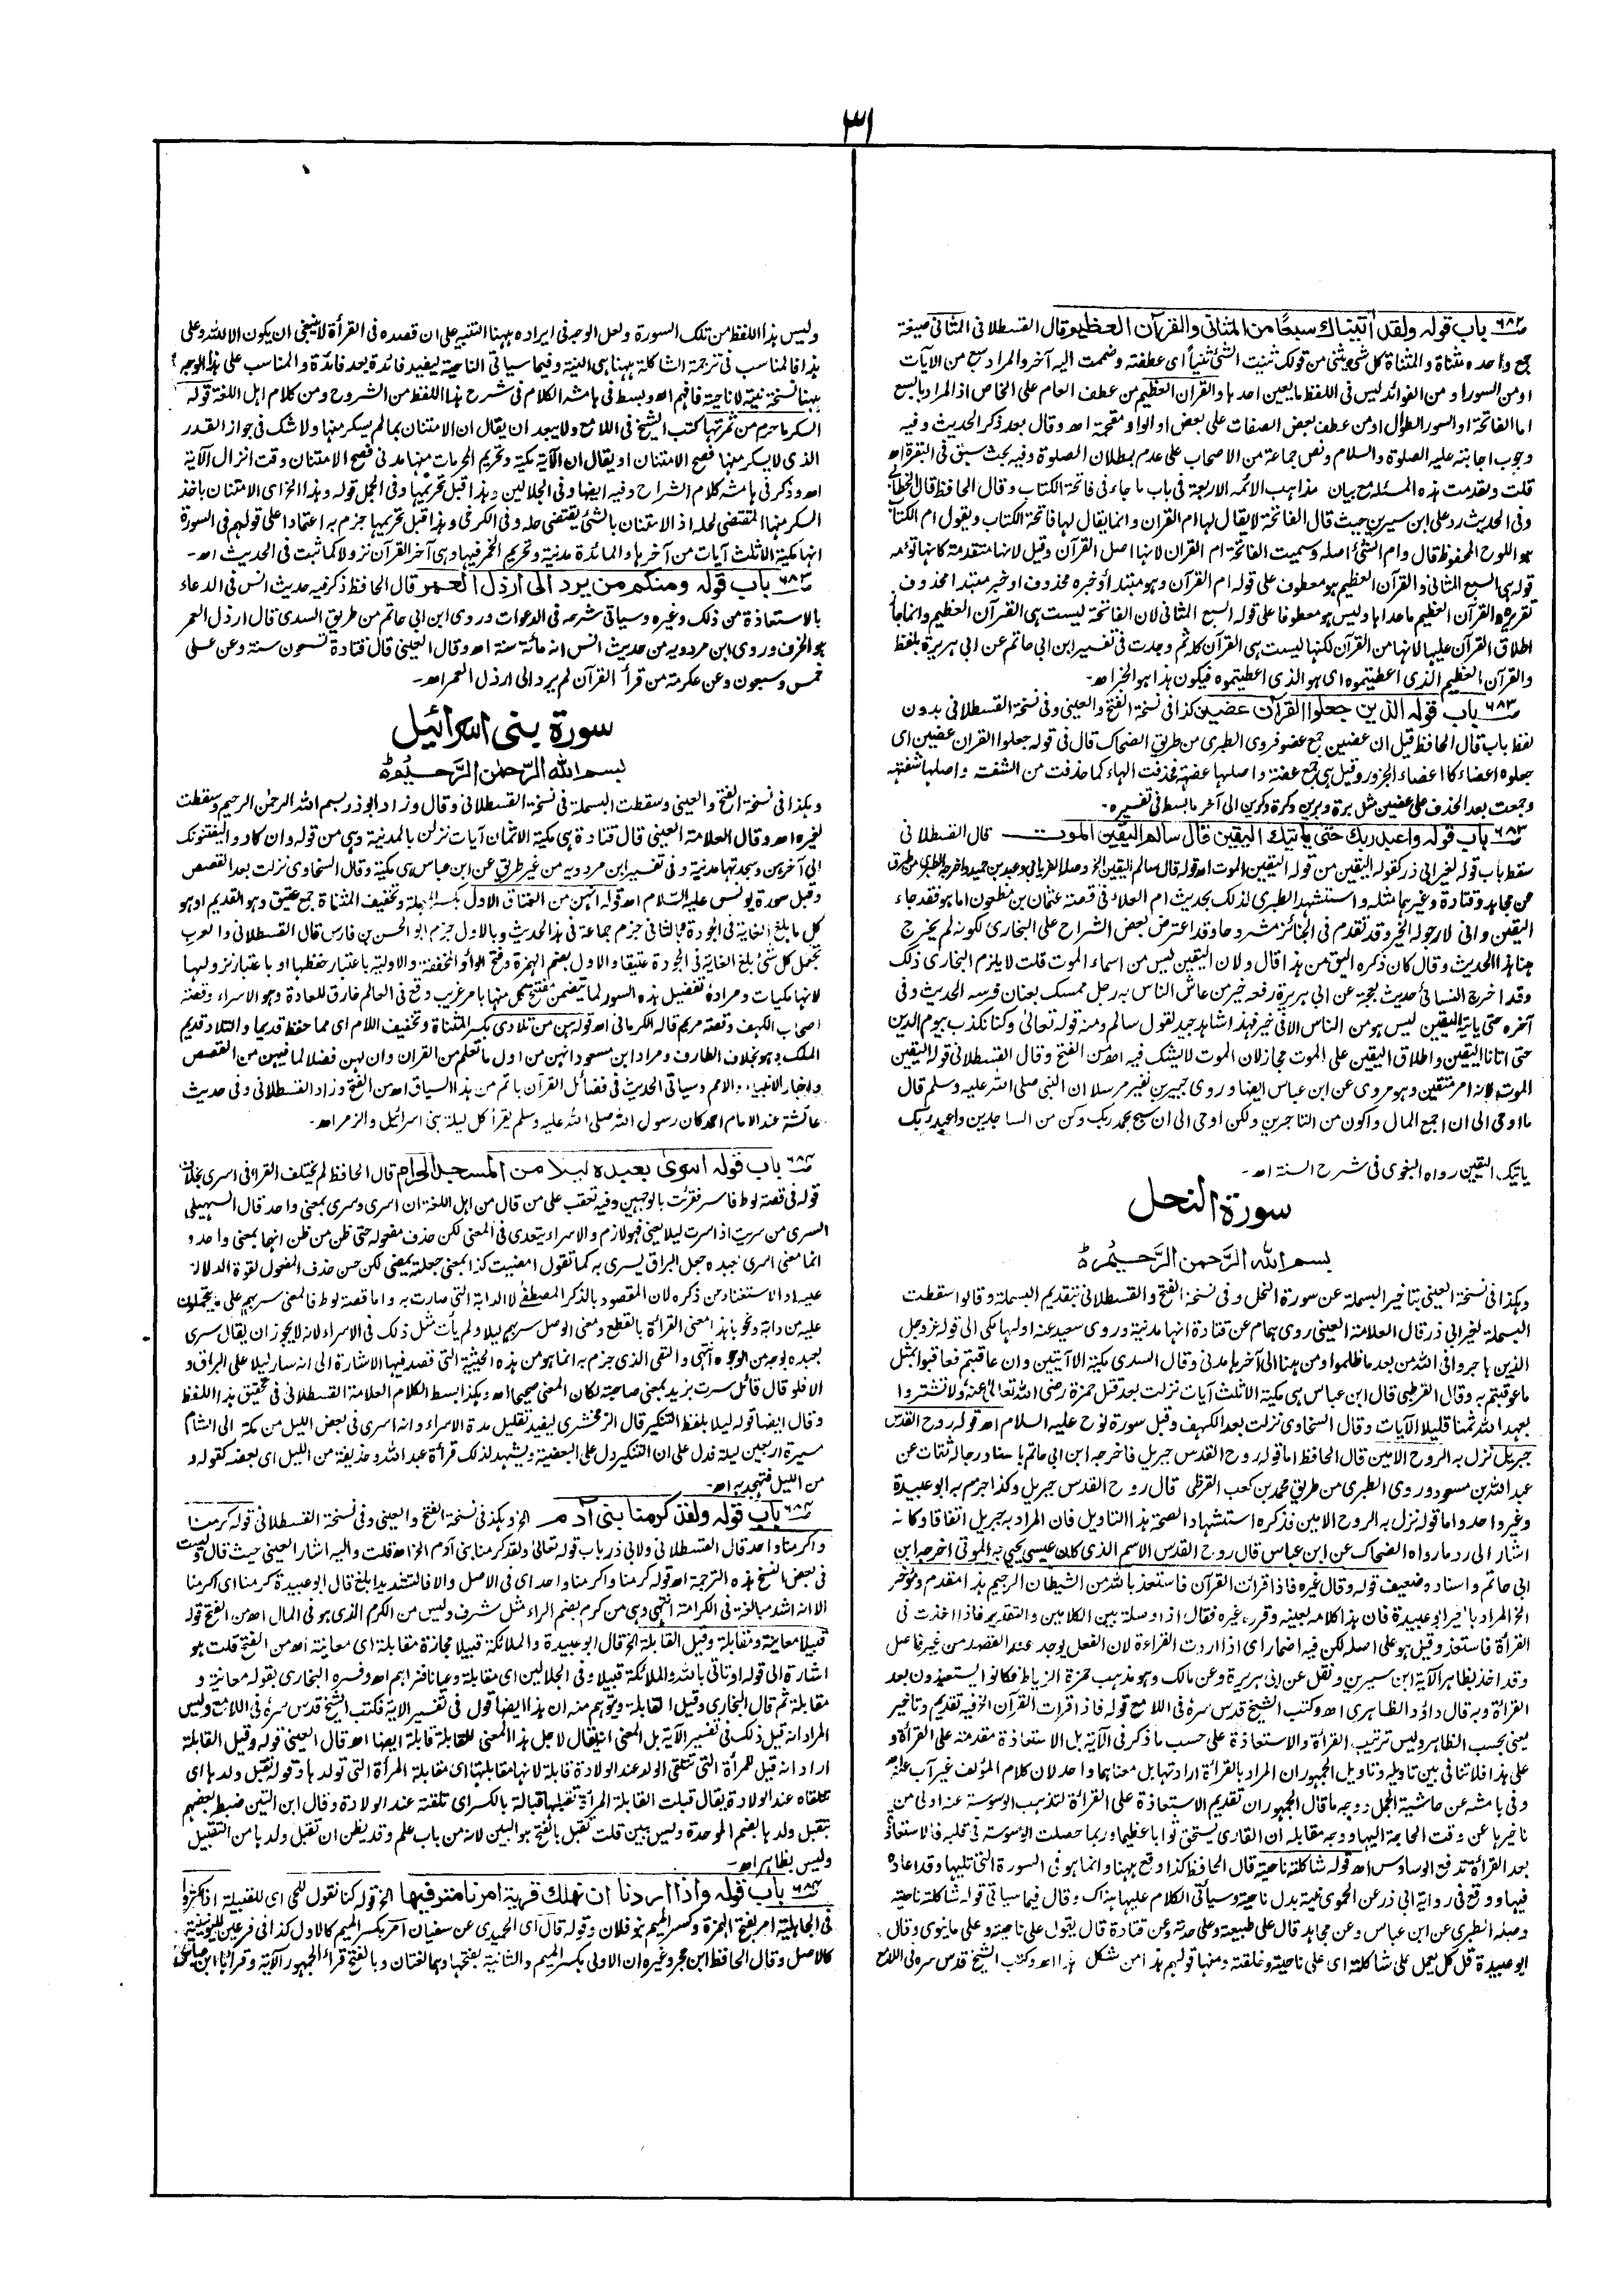 ٣١
٦٨٢ باب قوله ولقد اٰتيناك سبعًا من المثاني والقراٰن العظيم وقال القسطلاني المثاني صيغة
جمع واحده مثناة والمثناة كل شيء يثنى من قولك ثنيت الشئ ثنيا أى عطفته وضممت اليه آخر والمراد سبع من الآيات
او من السور او من الفوائد ليس في اللفظ ما يعين احدها والقران العظيم من عطف العام على الخاص اذ المراد بالسبع
اما الفاتحة او السور الطوال او من عطف بعض الصفات على بعض او الواو مقحمة اھ وقال بعد ذكر الحديث وفيه
وجوب اجابته عليه الصلوة والسلام ونص جماعة من الاصحاب على عدم بطلان الصلوة وفيه بحث سبق في البقرة اھ
قلت وتقدمت هذه المسئلة مع بيان مذاهب الائمه الاربعة في باب ما جاء في فاتحة الكتاب وقال الحافظ قال الخطابي
وفى الحديث رد على ابن سيرين حيث قال الفاتحة لا يقال لها ام القران وانما يقال لها فاتحة الكتاب ويقول ام الكتاب
هو اللوح المحفوظ قال وام الشئ اصله وسميت الفاتحة ام القران لانها اصل القرآن وقيل لانها متقدمة كانها تؤمه
قوله هى السبع المثانى والقرآن العظيم هو معطوف على قوله ام القرآن وهو مبتدأ وخبره محذوف او خبر مبتدا محذوف
تقديره والقرآن العظيم ما عداها وليس هو معطوفا على قوله السبع المثانى لان الفاتحة ليست هى القرآن العظيم وانما جاز
اطلاق القرآن عليها لانها من القرآن لكنها ليست هى القرآن كله ثم وجدت في تفسير ابن ابي حاتم عن ابي هريرة بلفظ
والقرآن العظيم الذى اعطيتموه اى هو الذى اعطيتموه فيكون هذا هو الخبر اھ۔
٦٨٣ باب قوله الذين جعلوا القراٰن عضين كذا فى نسخة الفتح والعيني وفى نسخة القسطلانى بدون
لفظ باب قال الحافظ قيل ان عضين جمع عضو فروى الطبرى من طريق الضحاك قال فى قوله جعلوا القران عضين اى
جعلوه اعضاء كاعضاء الجزور وقيل هى جمع عضة واصلها عضهة فحذفت الهاء كما حذفت من الشفة واصلها شفهة
وجمعت بعد الحذف على عضين مثل برة وبرين وكرة وكرين الى آخر ما بسط فى تفسيره۔
٦٨٣ باب قوله واعبد ربك حتى ياتيك اليقين قال سالم اليقين الموت قال القسطلانى
سقط باب قوله لغير ابى ذر كقوله اليقين من قوله اليقين الموت اھ قوله قال سالم اليقين الخ وصله الفريابى وعبد بن حميد واخرجه الطبرى من طرق
عن مجاهد وقتادة وغيرهما مثله واستشهد الطبرى لذلك بحديث ام العلاء فى قصة عثمان بن مظعون اما هو فقد جاء
اليقين وانى لارجو له الخير وقد تقدم فى الجنائز مشروحا وقد اعترض بعض الشراح على البخارى لكونه لم يخرج
هنا هذا الحديث وقال كان ذكره اليق من هذا قال ولان اليقين ليس من اسماء الموت قلت لا يلزم البخارى ذلك
وقد اخرج النسائى حديث بعجة عن ابى هريرة رفعه خير من عاش الناس به رجل ممسك بعنان فرسه الحديث وفى
آخره حتى يأتيه اليقين ليس هو من الناس الا فى خير فهذا شاهد جيد لقول سالم ومنه قوله تعالى وكنا نكذب بيوم الدين
حتى اتانا اليقين واطلاق اليقين على الموت مجاز لان الموت لا يشك فيه اھ من الفتح وقال القسطلانى قوله اليقين
الموت لانه امر متيقن وهو مروى عن ابن عباس ايضا وروى جبير بن نفير مرسلا ان النبى صلى الله عليه وسلم قال
ما اوحى الى ان اجمع المال واكون من التاجرين ولكن اوحى الى ان سبح بحمد ربك وكن من الساجدين واعبد ربك
حتى ياتيك اليقين رواه البغوى فى شرح السنة اھ۔
سورة النحل
بسم الله الرّحمن الرّحيم
وهكذا فى نسخة العينى بتاخير البسملة عن سورة النحل وفى نسخة الفتح والقسطلانى بتقديم البسملة وقالوا سقطت
البسملة لغير ابى ذر قال العلامة العينى روى همام عن قتادة انها مدنية وروى سعيد عنه اولها مكى الى قوله عز وجل
الذين هاجروا فى الله من بعد ما ظلموا ومن هنا الى آخرها مدنى وقال السدى مكية الا آيتين وان عاقبتم فعاقبوا بمثل
ما عوقبتم به وقال القرطبى قال ابن عباس هى مكية الا ثلث آيات نزلت بعد قتل حمزة رضى الله تعالى عنه ولا تشتروا
بعهد الله ثمنا قليلا الآيات وقال السخاوى نزلت بعد الكهف وقبل سورة نوح عليه السلام اھ قوله روح القدس
جبريل نزل به الروح الامين قال الحافظ اما قوله روح القدس جبريل فاخرجه ابن ابى حاتم باسناد رجاله ثقات عن
عبد الله بن مسعود وروى الطبرى من طريق محمد بن كعب القرظى قال روح القدس جبريل وكذا جزم به ابو عبيدة
وغير واحد واما قوله نزل به الروح الامين فذكره استشهادا لصحة هذا التاويل فان المراد به جبريل اتفاقا وكانه
اشار الى رد ما رواه الضحاك عن ابن عباس قال روح القدس الاسم الذى كان عيسى يحيي به الموتى اخرجه ابن
ابى حاتم واسناده ضعيف قوله وقال غيره فاذا قرات القرآن فاستعذ بالله من الشيطان الرجيم هذا مقدم ومؤخر
الخ المراد بالغير ابو عبيدة فان هذا كلامه بعينه وقرره غيره فقال اذا وصلة بين الكلامين والتقدير فاذا اخذت فى
القرأة فاستعذ وقيل هو على اصله لكن فيه اضمار اى اذا اردت القراءة لان الفعل يوجد عند القصد من غير فاصل
وقد اخذ بظاهر الآية ابن سيرين ونقل عن ابى هريرة وعن مالك وهو مذهب حمزة الزيات فكانوا يستعيذون بعد
القرأة وبه قال داؤد الظاهرى اھ وكتب الشيخ قدس سره فى اللامع قوله فاذا قرات القرآن الخ فيه تقديم وتاخير
يعنى بحسب الظاهر وليس ترتيب القرأة والاستعاذة على حسب ما ذكر فى الآية بل الاستعاذة مقدمة على القرأة و
على هذا فلا تنافى بين تاويله وتاويل الجمهور ان المراد بالقرأة ارادتها بل معناهما واحد لان كلام المؤلف غير آب عنه اھ
وفى هامشه عن حاشية الجمل وجه ما قال الجمهور ان تقديم الاستعاذة على القرأة لتذهب الوسوسة عنه اولى من
تاخيرها عن وقت الحاجة اليها ووجه مقابله ان القارى يستحق ثوابا عظيما وربما حصلت الوسوسة فى قلبه فالاستعاذة
بعد القرأة تدفع الوساوس اھ قوله شاكلته ناحيته قال الحافظ كذا وقع ههنا وانما هو فى السورة التى تليها وقد اعاده
فيها ووقع فى رواية ابى ذر عن الحموى نيته بدل ناحيته وسيأتى الكلام عليها هناك وقال فيما سياتى قوله شاكلته ناحيته
وصله الطبرى عن ابن عباس وعن مجاهد قال على طبيعته وعلى حدته وعن قتادة قال يقول على ناحيته وعلى ما ينوى وقال
ابو عبيدة قل كل يعمل على شاكلته اى على ناحيته وخلقته ومنها قولهم هذا من شكل هذا اھ وكتب الشيخ قدس سره فى اللامع
وليس هذا اللفظ من تلك السورة ولعل الوجه فى ايراده ههنا التنبيه على ان قصده فى القرأة لا ينبغى ان يكون الا لله وعلى
هذا فالمناسب فى ترجمة الشاكلة ههنا هى النية وفيما سياتى الناحية ليفيد فائدة بعد فائدة والمناسب على هذا الوجه
ههنا نسخة نيته لا ناحيته فافهم اھ وبسط فى هامشه الكلام فى شرح هذا اللفظ من الشروح ومن كلام اهل اللغة قوله
السكر ما حرم من ثمرتها كتب الشيخ فى اللامع ولا يبعد ان يقال ان الامتنان بما لم يسكر منها ولا شك فى جواز القدر
الذى لا يسكر منها فصح الامتنان او يقال ان الآية مكية وتحريم المحرمات منها مدنى فصح الامتنان وقت انزال الآية
اھ وذكر فى هامشه كلام الشراح وفيه ايضا وفى الجلالين وهذا قبل تحريمها وفى الجمل قوله وهذا الخ اى الامتنان باخذ
السكر منها المقتضى لحله اذ الامتنان بالشئ يقتضى حله وفى الكرخى وهذا قبل تحريمها جزم به اعتمادا على قولهم فى السورة
انها مكية الا ثلث آيات من آخرها والمائدة مدنية وتحريم الخمر فيها وهى آخر القرآن نزولا كما ثبت فى الحديث اھ۔
٦٨٣ باب قوله ومنكم من يرد الى ارذل العمر قال الحافظ ذكر فيه حديث انس فى الدعاء
بالاستعاذة من ذلك وغيره وسياتى شرحه فى الدعوات وروى ابن ابى حاتم من طريق السدى قال ارذل العمر
هو الخرف وروى ابن مردويه من حديث انس انه مائة سنة اھ وقال العينى قال قتادة تسعون سنة وعن على
خمس وسبعون وعن عكرمة من قرأ القرآن لم يرد الى ارذل العمر اھ۔
سورة بنى اسرائيل
بسم الله الرّحمٰن الرّحيم
وهكذا فى نسخة الفتح والعينى وسقطت البسملة فى نسخة القسطلانى وقال وزاد ابو ذر بسم الله الرحمٰن الرحيم وسقطت
لغيره اھ وقال العلامة العينى قال قتادة هى مكية الا ثمان آيات نزلن بالمدنية وهى من قوله وان كادوا ليفتنونك
الى آخرهن وسجدتها مدنية وفى تفسير ابن مردويه من غير طريق عن ابن عباس هى مكية وقال السخاوى نزلت بعد القصص
وقبل سورة يونس عليه السلام اھ قوله انهن من العتاق الاول بكسر المهملة وتخفيف المثناة جمع عتيق وهو القديم او هو
كل ما بلغ الغاية فى الجودة فبالثانى جزم جماعة فى هذا الحديث وبالاول جزم ابو الحسن بن فارس قال القسطلانى والعرب
تجعل كل شئ بلغ الغاية فى الجودة عتيقا والاول بضم الهمزة وفتح الواو المخففة والاولية باعتبار حفظها او باعتبار نزولها
لانها مكيات ومراده تفضيل هذه السور لما يتضمن مفتتح كل منها بامر غريب وقع فى العالم خارق للعادة وهو الاسراء وقصة
اصحاب الكهف وقصة مريم قاله الكرمانى اھ قوله هن من تلادى بكسر المثناة وتخفيف اللام اى مما حفظ قديما والتلاد قديم
الملك وهو بخلاف الطارف ومراد ابن مسعود انهن من اول ما تعلم من القران وان لهن فضلا لما فيهن من القصص
واخبار الانبياء والامم وسياتى الحديث فى فضائل القرآن باتم من هذا السياق اھ من الفتح وزاد القسطلانى وفى حديث
عائشة عند الامام احمد كان رسول الله صلى الله عليه وسلم يقرأ كل ليلة بنى اسرائيل والزمر اھ۔
٦٨٤ باب قوله اسرىٰ بعبده ليلا من المسجد الحرام قال الحافظ لم يختلف القراء فى اسرى بخلاف
قوله فى قصة لوط فاسر فقرئت بالوجهين وفيه تعقب على من قال من اهل اللغة ان اسرى وسرى بمعنى واحد قال السهيلى
السرى من سريت اذا سرت ليلا يعنى فهو لازم والاسراء يتعدى فى المعنى لكن حذف مفعوله حتى ظن من ظن انهما بمعنى واحد و
انما معنى اسرى بعبده جعل البراق يسرى به كما تقول امضيت كذا بمعنى جعلته يمضى لكن حسن حذف المفعول لقوة الدلالة
عليه او الاستغناء عن ذكره لان المقصود بالذكر المصطفى لا الدابة التى صارت به واما قصة لوط فالمعنى سر بهم على ما يتحملون
عليه من دابة ونحوها هذا معنى القرأة بالقطع ومعنى الوصل سر بهم ليلا ولم يأت مثل ذلك فى الاسراء لانه لا يجوز ان يقال سرى
بعبده بوجه من الوجوه انتهى والنفى الذى جزم به انما هو من هذه الحيثية التى قصد فيها الاشارة الى انه سار ليلا على البراق و
الا فلو قال قائل سرت بزيد بمعنى صاحبته لكان المعنى صحيحا اھ وهكذا بسط الكلام العلامة القسطلانى فى تحقيق هذا اللفظ
وقال ايضا قوله ليلا بلفظ التنكير قال الزمخشرى ليفيد تقليل مدة الاسراء وانه اسرى فى بعض الليل من مكة الى الشام
مسيرة اربعين ليلة فدل على ان التنكير دل على البعضية ويشهد لذلك قرأة عبد الله وحذيفة من الليل اى بعضه كقوله و
من الليل فتهجد به اھ۔
٦٨٤ باب قوله ولقد كرمنا بنى اٰدم الخ وهكذا فى نسخة الفتح والعينى وفى نسخة القسطلانى قوله كرمنا
واكرمنا واحد قال القسطلانى ولابى ذر باب قوله تعالى ولقد كرمنا بنى آدم الخ اھ قلت واليه اشار العينى حيث قال وليست
فى بعض النسخ هذه الترجمة اھ قوله كرمنا واكرمنا واحد اى فى الاصل والا فالتشديد ابلغ قال ابو عبيدة كرمنا اى اكرمنا
الا انه اشد مبالغة فى الكرامة انتهى وهى من كرم بضم الراء مثل شرف وليس من الكرم الذى هو فى المال اھ من الفتح قوله
قبيلا معاينة ومقابلة وقيل القابلة الخ قال ابو عبيدة والملائكة قبيلا مجازه مقابلة اى معاينة اھ من الفتح قلت هو
اشارة الى قوله او تاتى بالله والملائكة قبيلا وفى الجلالين اى مقابلة وعيانا فنراهم اھ وفسره البخارى بقوله معاينة و
مقابلة ثم قال البخارى وقيل القابلة ويتوهم منه ان هذا ايضا قول فى تفسير الاية فكتب الشيخ قدس سره فى اللامع وليس
المراد انه قيل ذلك فى تفسير الآية بل المعنى انه يقال لاجل هذا المعنى للقابلة قابلة ايضا اھ قال العينى قوله وقيل القابلة
اراد انه قيل للمرأة التى تتلقى الولد عند الولادة قابلة لانها مقابلتها اى مقابلة المرأة التى تولدها وقوله تقبل ولدها اى
تتلقاه عند الولادة يقال قبلت القابلة المرأة تقبلها قبالة بالكسر اى تلقته عند الولادة وقال ابن التين ضبطه بعضهم
بتقبل ولدها بالضم الموحدة وليس ببين قلت تقبل بالفتح هو البين لانه من باب علم وقد يظن ان تقبل ولدها من التقبيل
وليس بظاهر اھ۔
٦٨٤ باب قوله واذا اردنا ان نهلك قرية امرنا مترفيها الخ قوله كنا نقول للحى اى للقبيلة اذا كثروا
فى الجاهلية امر بفتح الهمزة وكسر الميم بنو فلان وقوله قال اى الحميدى عن سفيان امر بكسر الميم كالاول كذا فى فرعين لليونينية
كالاصل وقال الحافظ ابن حجر وغيره ان الاولى بكسر الميم والثانية بفتحها وهما لغتان وبالفتح قرأة الجمهور الآية وقرأها ابن عباس